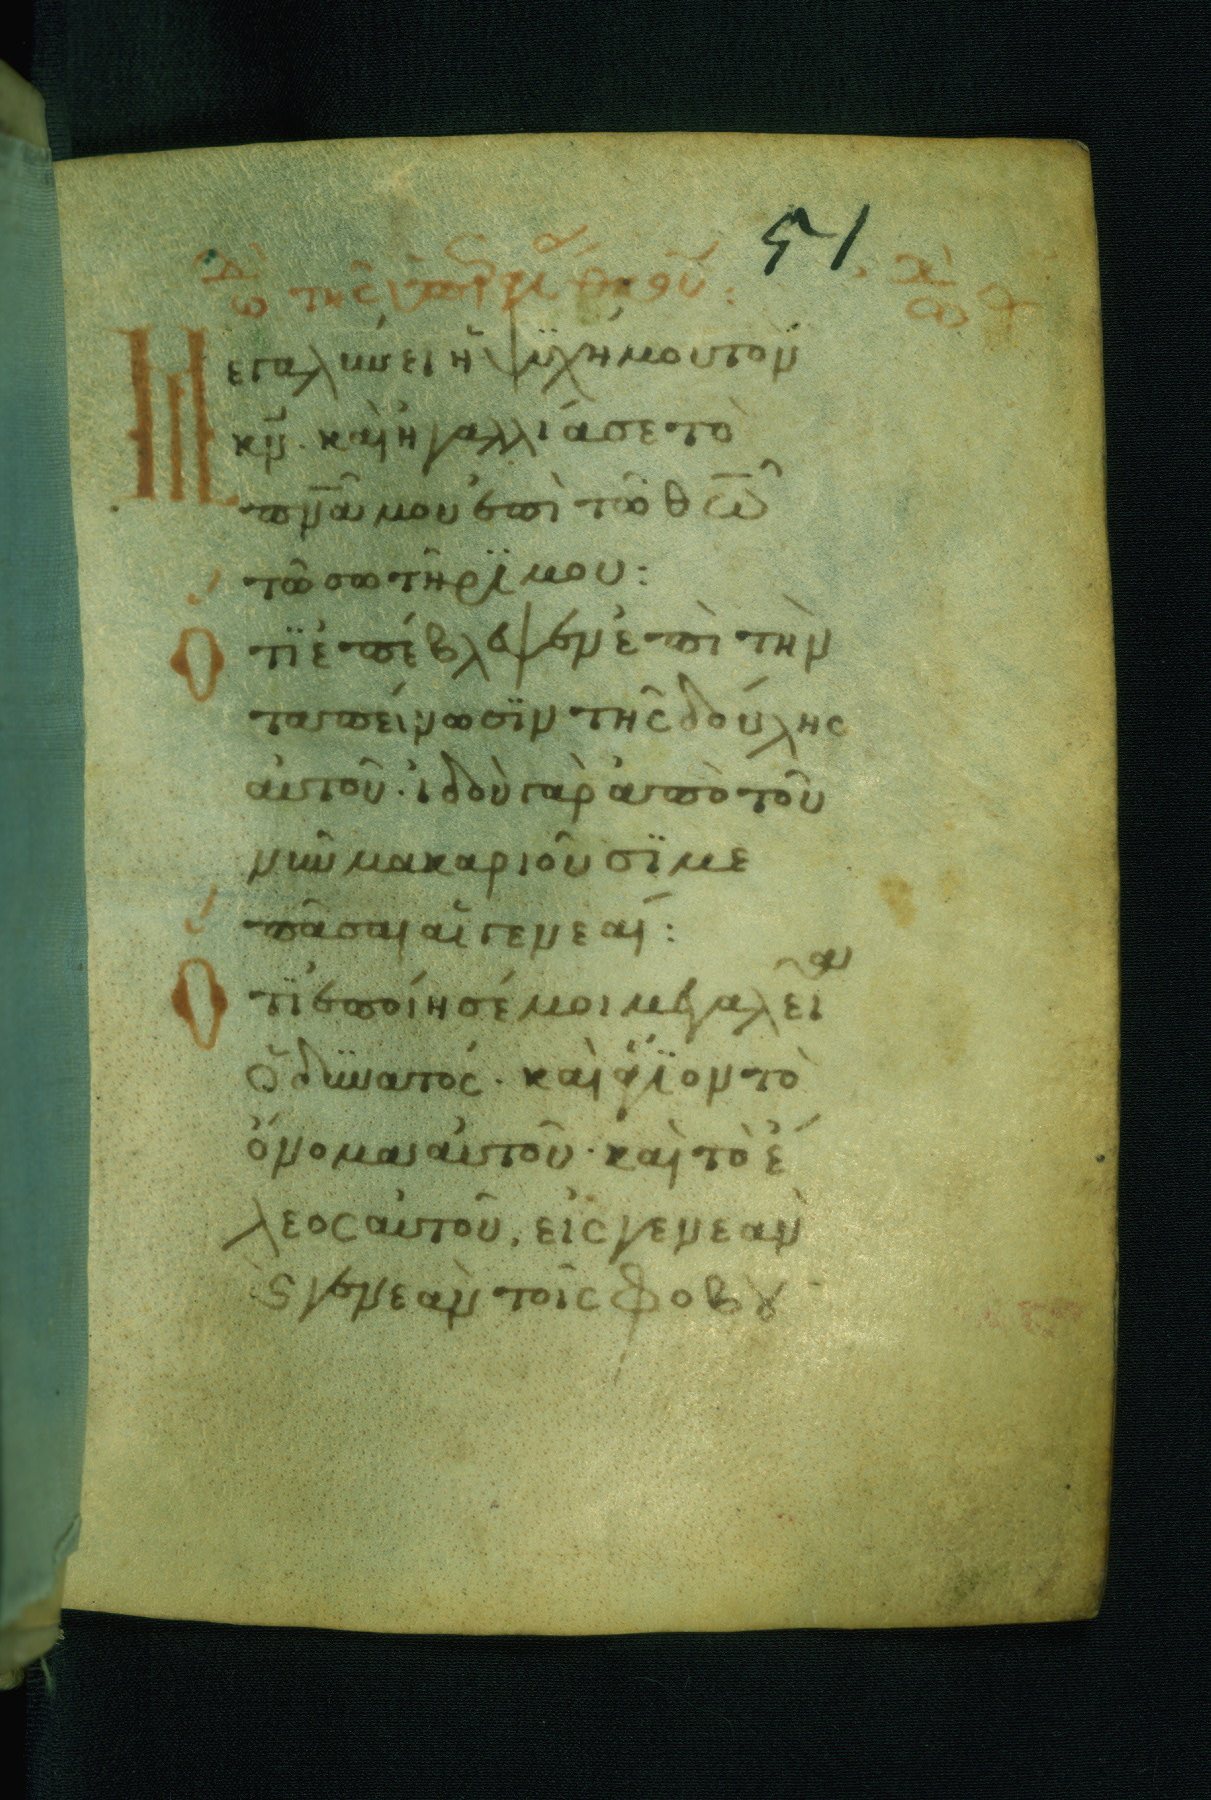 51
ᾠδὴ τῆς ὑπεραγίας θκου: ᾠδὴ
Μεγαλύνει ἡ ψϋχή μου τὸν
κν̅· καὶ ἠγαλλίασε τὸ
πν̅α μου ἐπὶ τῶ θω̅
τῶ σωτῆρϊ μου:
Ὅτϊ ἐπέβλεψεν ἐπὶ τὴν
ταπείνωσϊν τῆς δούλης
αὐτοῦ· ἰδοὺ γὰρ ἀπὸ τοῦ
νῦν μακαριοῦσϊ με
πᾶσαι αἱ γενεαί:
Ὅτϊ ἐποίησέ μοι μεγαλεῖα
ὁ δϋνατός· καὶ ἅγϊον τὸ
ὄνομα αὐτοῦ· καὶ τὸ ἔ
λεος αὐτοῦ, εἰς γενεὰν
ϗ γενεὰν τοῖς φοβȣ